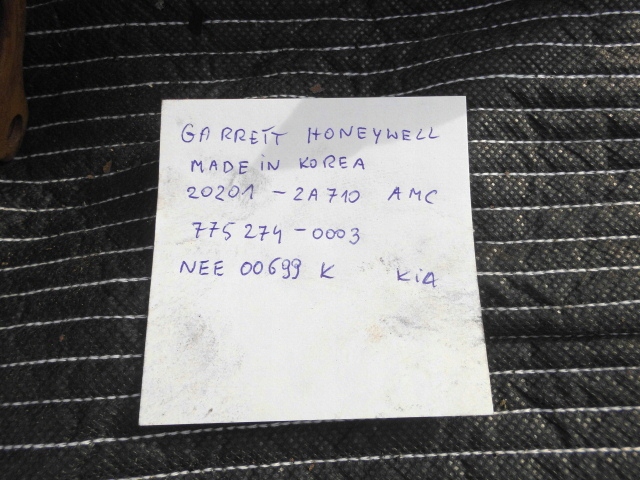 GARRETT HONEYWELL
MADE IN KOREA
20201 - 2A710 AMC
775274-0003
NEE 00699 K KiA